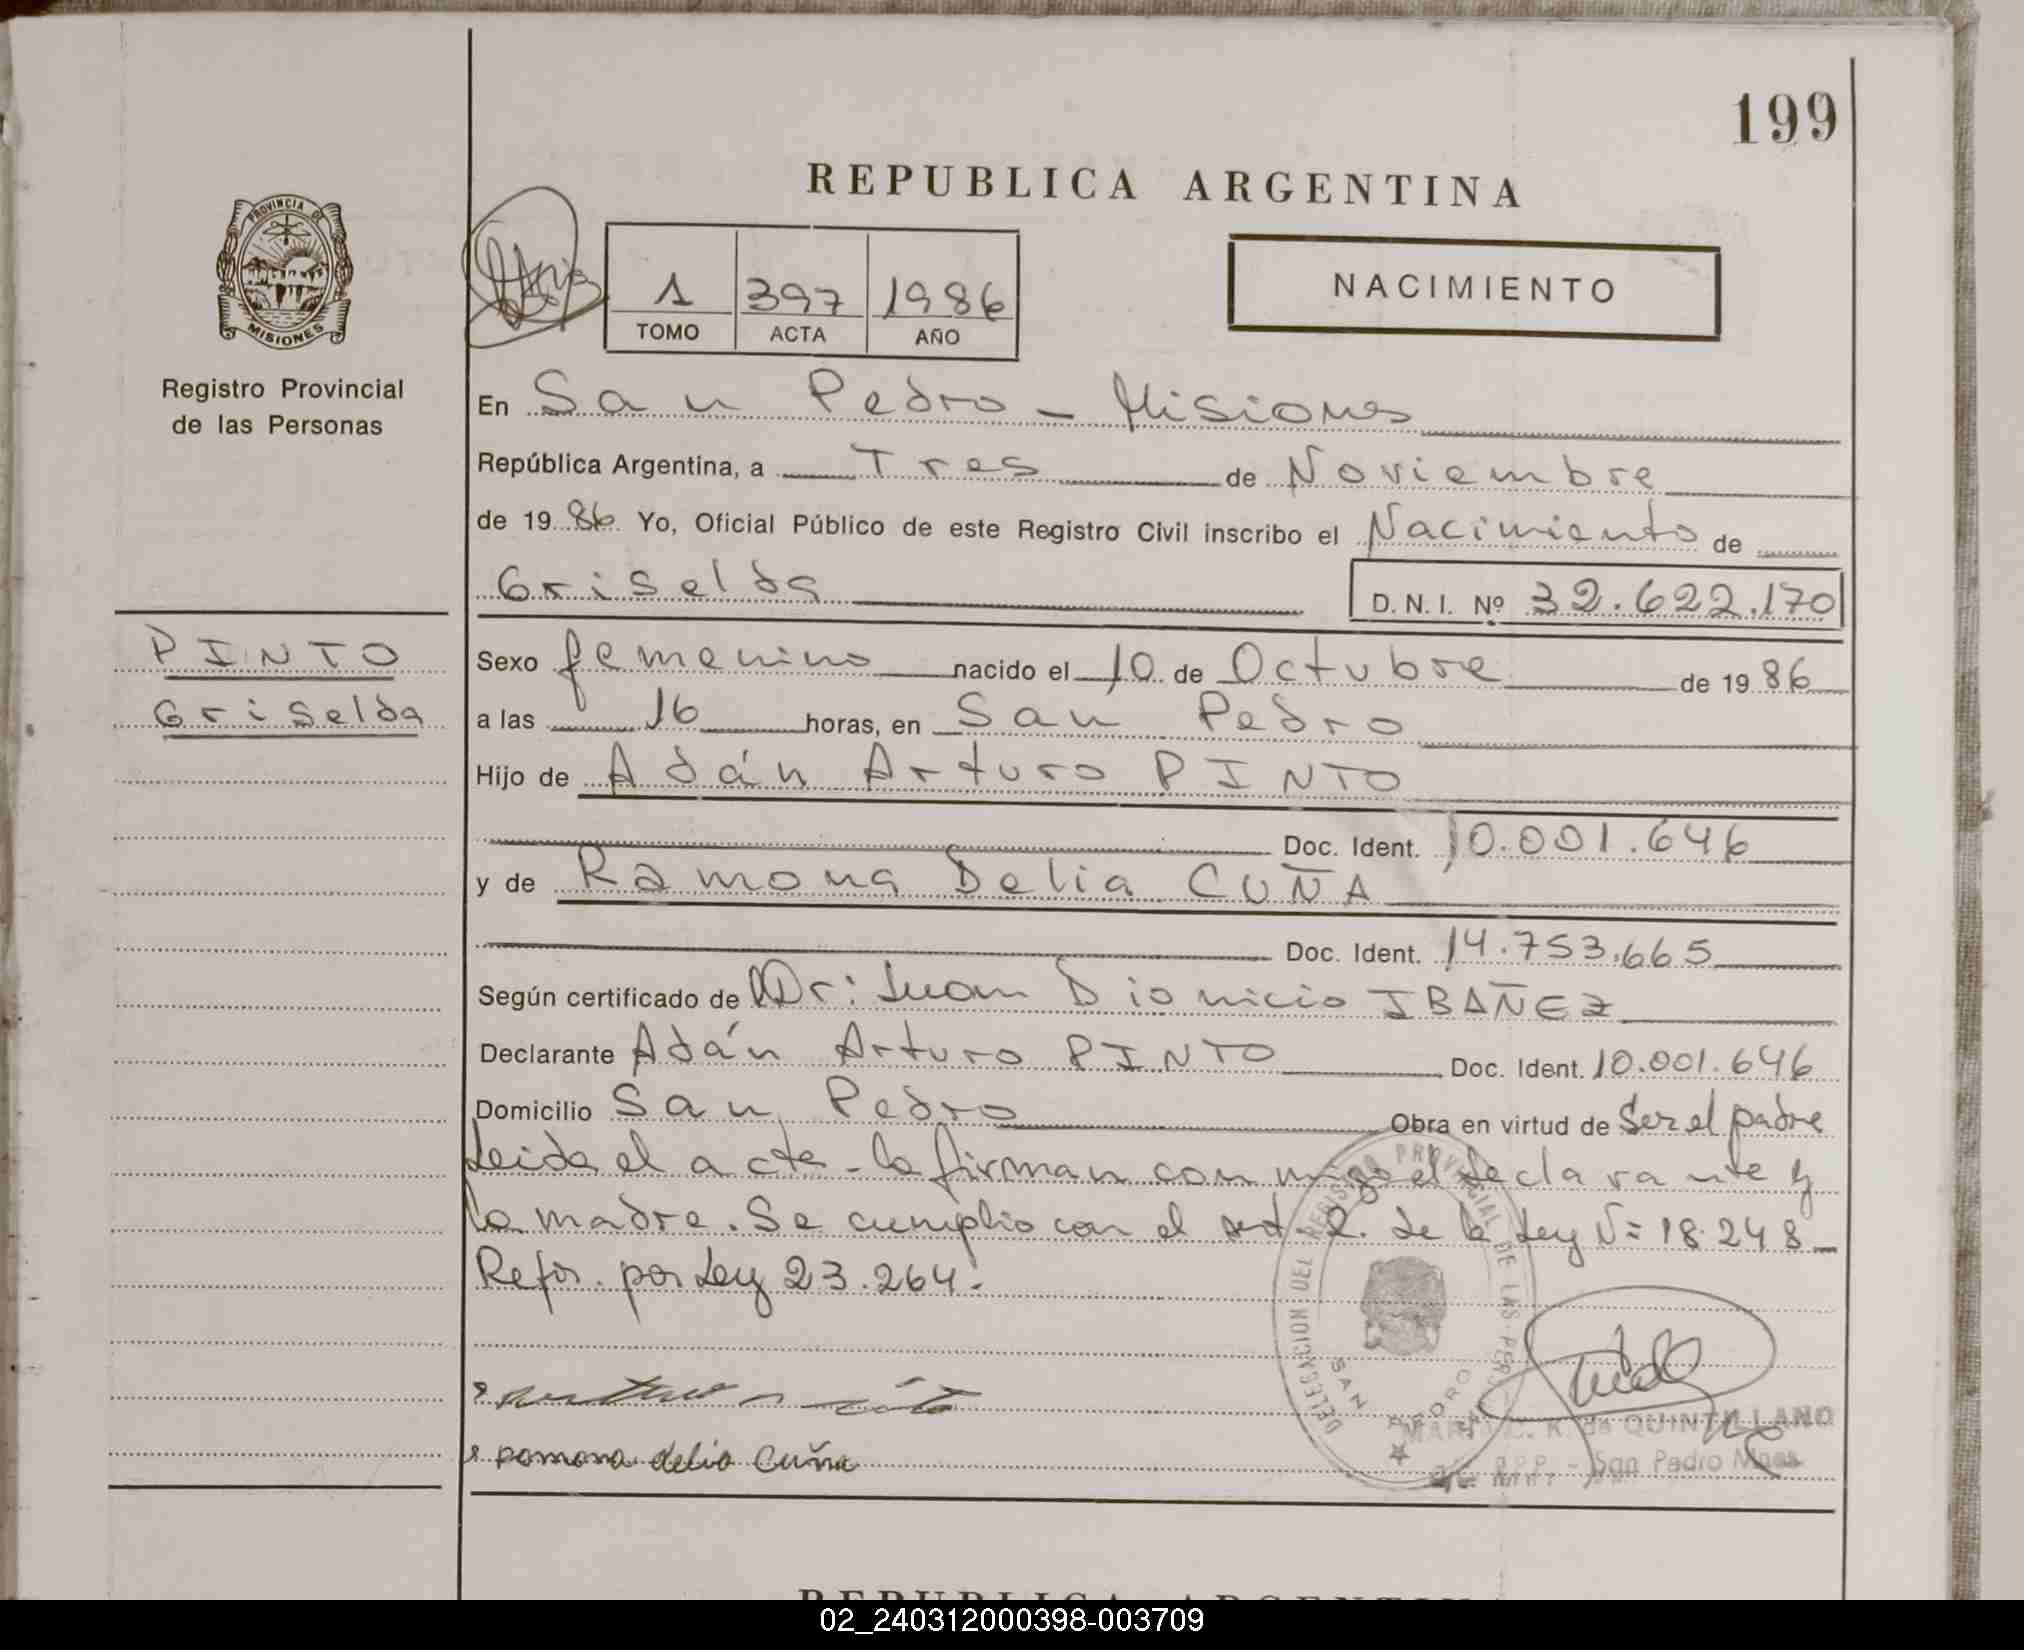 199
REPUBLICA ARGENTINA
PROVINCIA DE
MISIONES
Registro Provincial
de las Personas
1 397 1986
TOMO ACTA AÑO
NACIMIENTO
En San Pedro - Misiones
República Argentina, a Tres de Noviembre
de 1986 Yo, Oficial Público de este Registro Civil inscribo el Nacimiento de
Griselda D.N.I. Nº 32.622.170
PINTO
Griselda
Sexo femenino nacido el 10 de Octubre de 1986
a las 16 horas, en San Pedro
Hijo de Adán Arturo PINTO
Doc. Ident. 10.001.646
y de Ramona Delia CUÑA
Doc. Ident. 14.753.665
Según certificado de Dr: Juan Dionicio IBAÑEZ
Declarante Adán Arturo PINTO Doc. Ident. 10.001.646
Domicilio San Pedro Obra en virtud de Ser el padre
Leida el acta - la firman conmigo el declarante y
la madre. Se cumplio con el art. 2. de la Ley Nº 18.248
Refor. por Ley 23.264.
DELEGACION DEL REGISTRO PROVINCIAL DE LAS PERSONAS
SAN PEDRO
de QUINTILLANO
San Pedro Mnes
ramona delia Cuña
REPUBLICA ARGENTINA
02_240312000398-003709